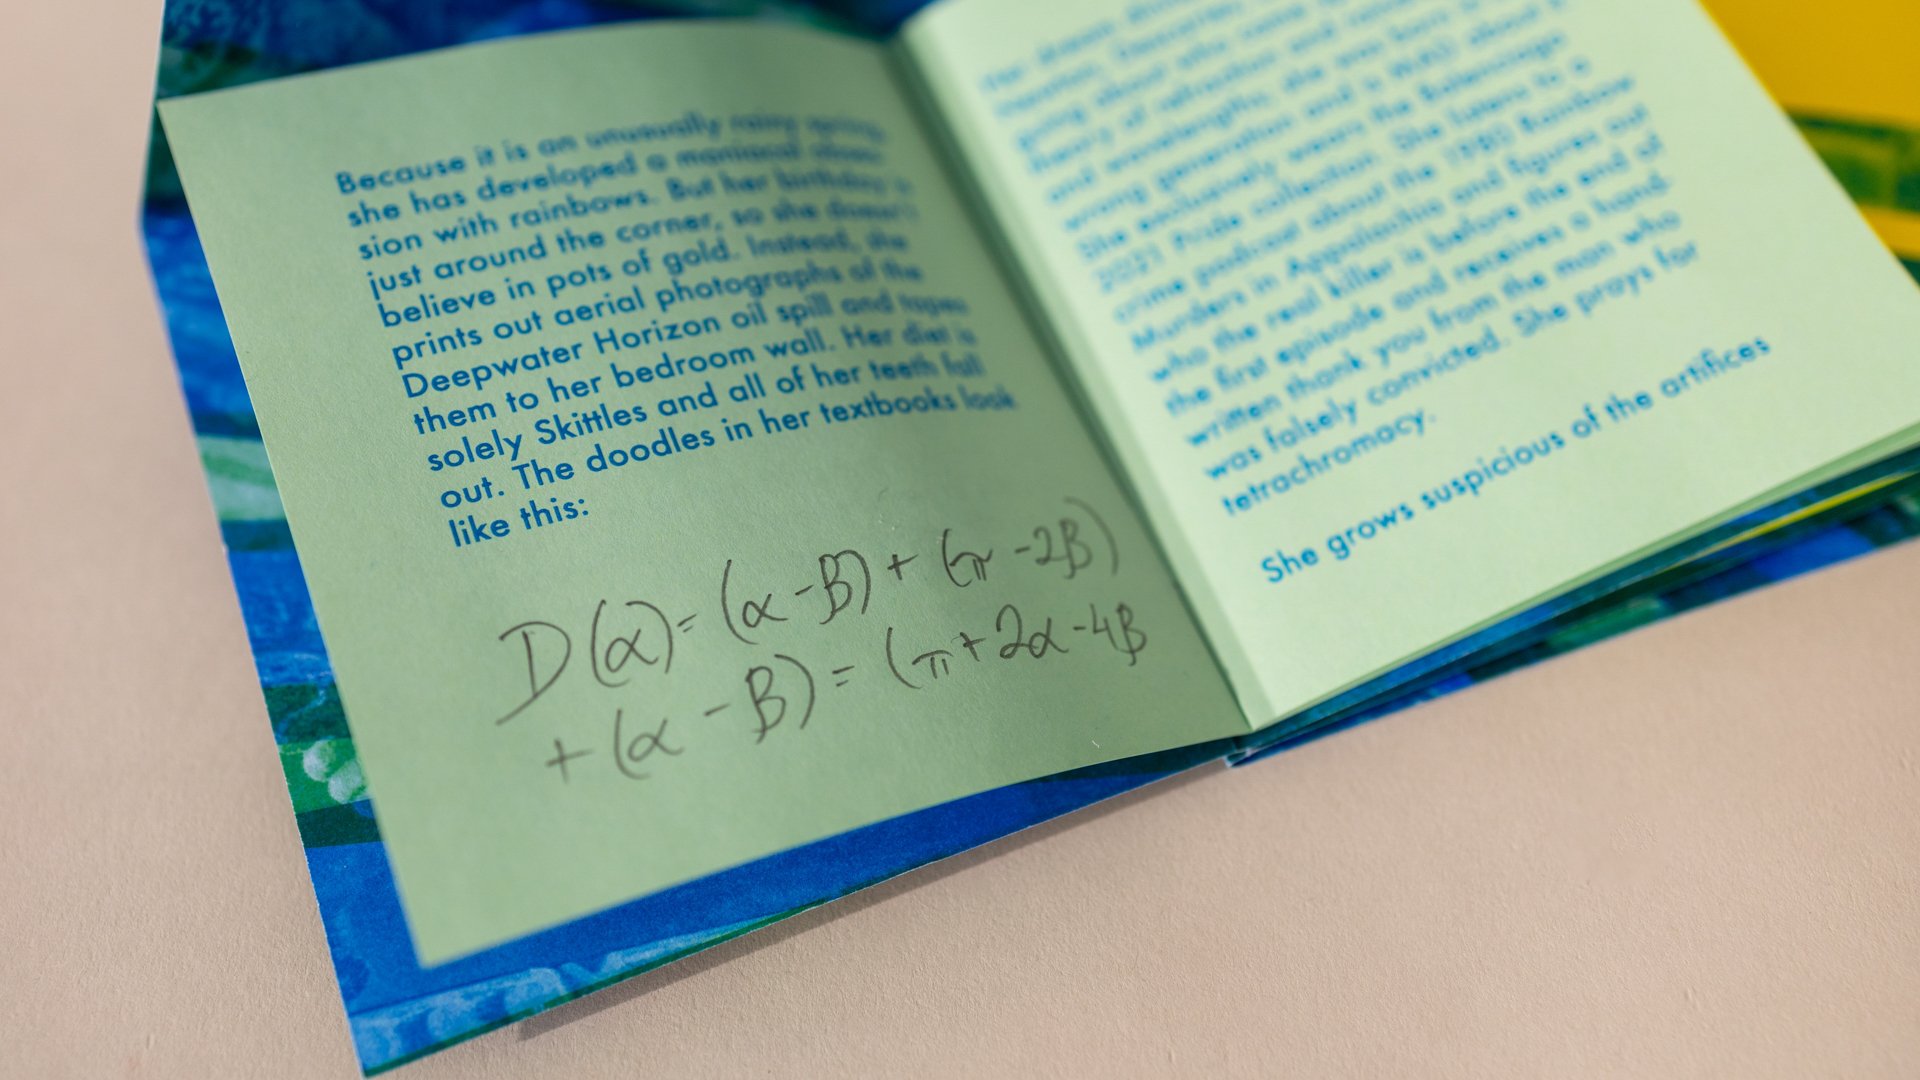 Because it is an unusually rainy spring,
she has developed a maniacal obses-
sion with rainbows. But her birthday is
just around the corner, so she doesn't
believe in pots of gold. Instead, she
prints out aerial photographs of the
Deepwater Horizon oil spill and tapes
them to her bedroom wall. Her diet is
solely Skittles and all of her teeth fall
out. The doodles in her textbooks look
like this:
D(α)=(α-β)+(π-2β)
+(α-β)=(π+2α-4β
going about
theory of refraction and
and wavelengths, she was born in the
wrong generation and is MAD about it.
She exclusively wears the Balenciaga
2021 Pride collection. She listens to a
crime podcast about the 1980 Rainbow
Murders in Appalachia and figures out
who the real killer is before the end of
the first episode and receives a hand-
written thank you from the man who
was falsely convicted. She prays for
tetrachromacy.
She grows suspicious of the artifices